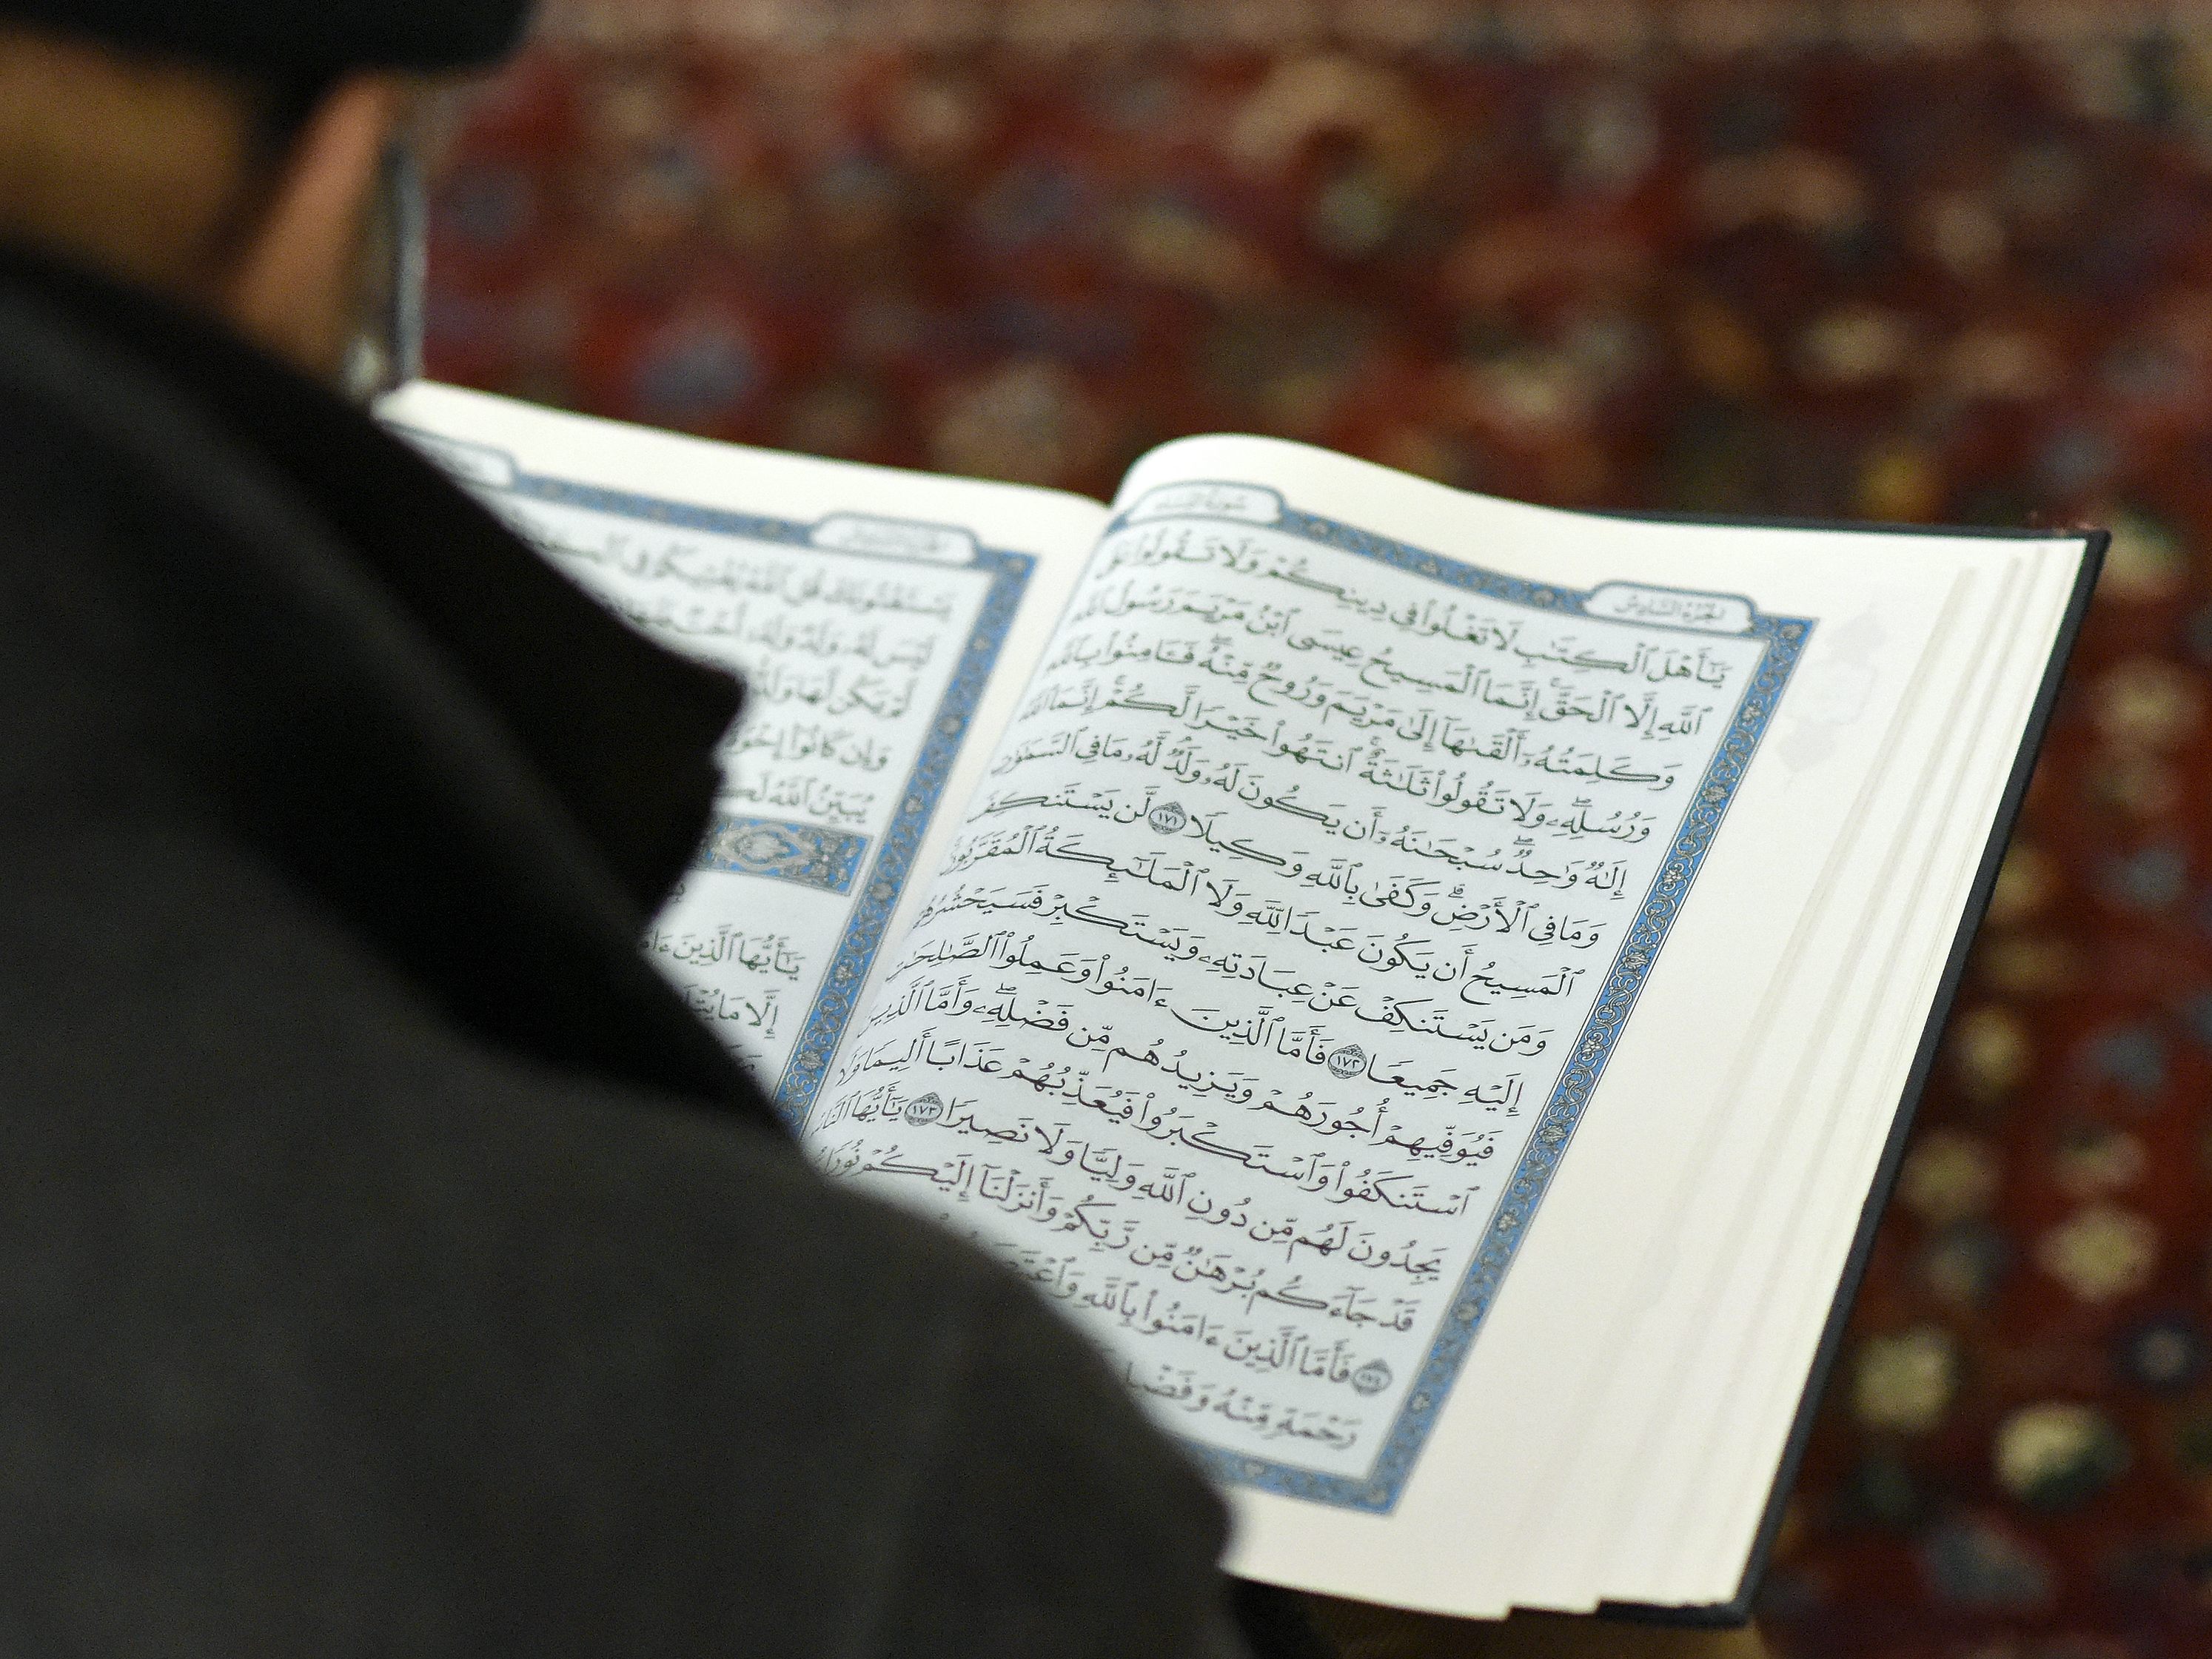 سورة النساء
الجزء السادس
يَٰٓأَهۡلَ ٱلۡكِتَٰبِ لَا تَغۡلُواْ فِي دِينِكُمۡ وَلَا تَقُولُواْ عَلَى
ٱللَّهِ إِلَّا ٱلۡحَقَّۚ إِنَّمَا ٱلۡمَسِيحُ عِيسَى ٱبۡنُ مَرۡيَمَ رَسُولُ ٱللَّهِ
وَكَلِمَتُهُۥٓ أَلۡقَىٰهَآ إِلَىٰ مَرۡيَمَ وَرُوحٞ مِّنۡهُۖ فَـَٔامِنُواْ بِٱللَّهِ
وَرُسُلِهِۦۖ وَلَا تَقُولُواْ ثَلَٰثَةٌۚ ٱنتَهُواْ خَيۡرٗا لَّكُمۡۚ إِنَّمَا ٱللَّهُ
إِلَٰهٞ وَٰحِدٞۖ سُبۡحَٰنَهُۥٓ أَن يَكُونَ لَهُۥ وَلَدٞۘ لَّهُۥ مَا فِي ٱلسَّمَٰوَٰتِ
وَمَا فِي ٱلۡأَرۡضِۗ وَكَفَىٰ بِٱللَّهِ وَكِيلٗا ١٧١ لَّن يَسۡتَنكِفَ
ٱلۡمَسِيحُ أَن يَكُونَ عَبۡدٗا لِّلَّهِ وَلَا ٱلۡمَلَٰٓئِكَةُ ٱلۡمُقَرَّبُونَۚ
وَمَن يَسۡتَنكِفۡ عَنۡ عِبَادَتِهِۦ وَيَسۡتَكۡبِرۡ فَسَيَحۡشُرُهُمۡ
إِلَيۡهِ جَمِيعٗا ١٧٢ فَأَمَّا ٱلَّذِينَ ءَامَنُواْ وَعَمِلُواْ ٱلصَّٰلِحَٰتِ
فَيُوَفِّيهِمۡ أُجُورَهُمۡ وَيَزِيدُهُم مِّن فَضۡلِهِۦۖ وَأَمَّا ٱلَّذِينَ
ٱسۡتَنكَفُواْ وَٱسۡتَكۡبَرُواْ فَيُعَذِّبُهُمۡ عَذَابًا أَلِيمٗا وَلَا
يَجِدُونَ لَهُم مِّن دُونِ ٱللَّهِ وَلِيّٗا وَلَا نَصِيرٗا ١٧٣ يَٰٓأَيُّهَا ٱلنَّاسُ
قَدۡ جَآءَكُم بُرۡهَٰنٞ مِّن رَّبِّكُمۡ وَأَنزَلۡنَآ إِلَيۡكُمۡ نُورٗا
١٧٤ فَأَمَّا ٱلَّذِينَ ءَامَنُواْ بِٱللَّهِ
رَحۡمَةٖ مِّنۡهُ
يَسۡتَفۡتُونَكَ قُلِ ٱللَّهُ يُفۡتِيكُمۡ فِي
لَيۡسَ لَهُۥ وَلَدٞ وَلَهُۥٓ أُخۡتٞ
لَّمۡ يَكُن لَّهَا
وَإِن كَانُوٓاْ
يُبَيِّنُ ٱللَّهُ
يَٰٓأَيُّهَا ٱلَّذِينَ
إِلَّا مَا